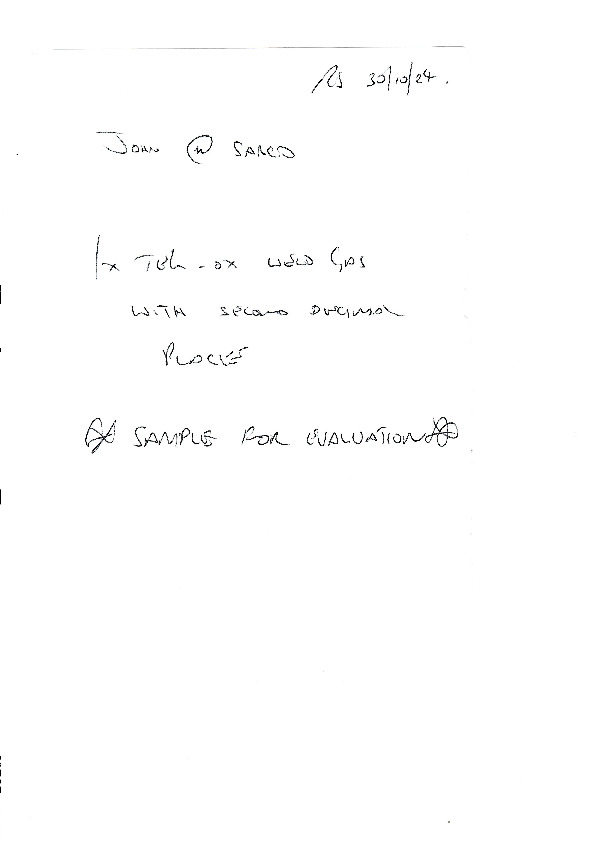 RS 30/10/24.
JOHN @ SARCO
1x TEL-OX WELD GAS
WITH SECOND DECIMAL
PLACES
SAMPLE FOR EVALUATION